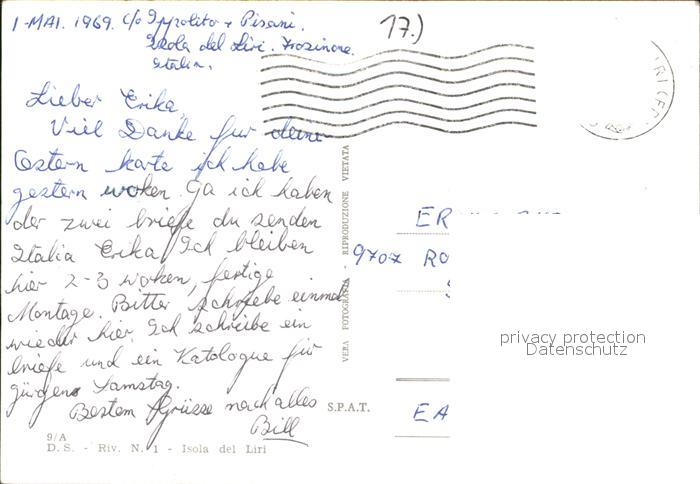 1 MAI. 1969. c/o Ippolito + Pisani.
Isola del Liri. Frosinone.
Italia.
17.)
Lieber Erika,
Viel Danke für deine
Ostern karte ich habe
gestern woken. Ga ich haben
der zwei briefe du senden
Italia Erika Ich bleiben
hier 2-3 woken, fertige
Montage. Bitter schriebe einmal
wieder hier. Ich schreibe ein
briefe und ein Katologue für
Samstag.
Bestem Grüsse nach alles
Bill
9/A
D. S. - Riv. N. 1 - Isola del Liri
VERA FOTOGRAFIA - RIPRODUZIONE VIETATA
S.P.A.T.
ER
9707 RO
EA
privacy protection
Datenschutz